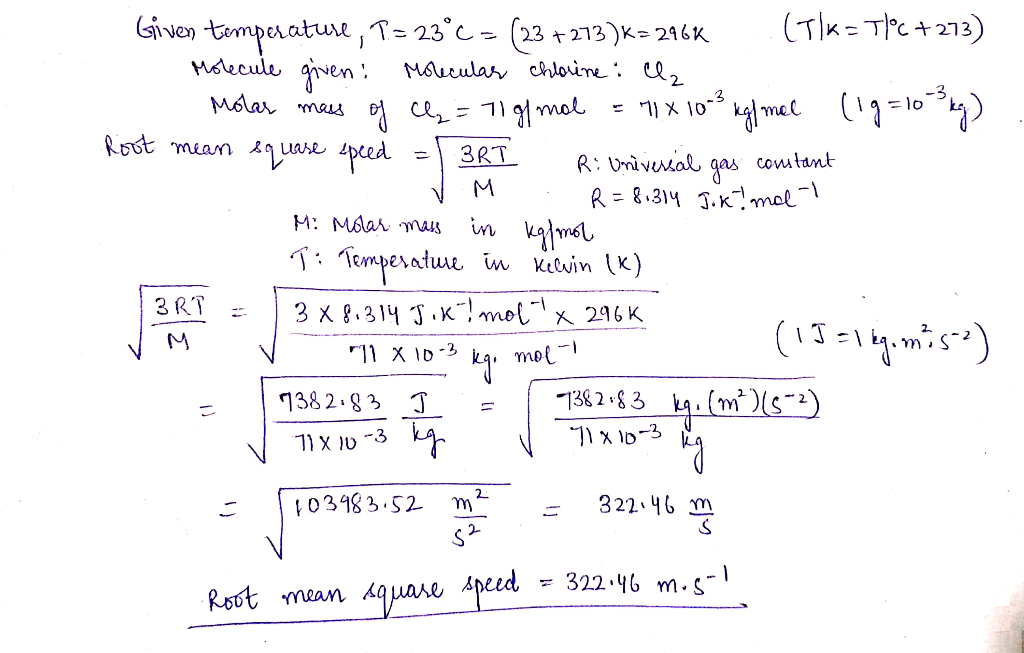 Given temperature, T = 23°C = (23 + 273)K = 296K (T/K = T/°C + 273)
Molecule given: Molecular chlorine: Cl₂
Molar mass of Cl₂ = 71 g/mol = 71 X 10⁻³ kg/mol (1g = 10⁻³ kg)
Root mean square speed = √(3RT/M) R: Universal gas constant
R = 8.314 J.K⁻¹.mol⁻¹
M: Molar mass in kg/mol
T: Temperature in Kelvin (K)
√(3RT/M) = √(3 X 8.314 J.K⁻¹.mol⁻¹ x 296K / 71 X 10⁻³ kg. mol⁻¹) (1J = 1 kg.m².s⁻²)
= √(7382.83 J / 71 X 10⁻³ kg) = √(7382.83 kg.(m²)(s⁻²) / 71 x 10⁻³ kg)
= √(103983.52 m²/s²) = 322.46 m/s
Root mean square speed = 322.46 m.s⁻¹